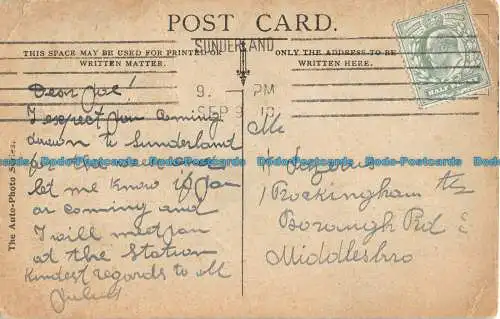 POST CARD.
SUNDERLAND
9. PM
SEP 9
THIS SPACE MAY BE USED FOR PRINTED OR
WRITTEN MATTER.
ONLY THE ADDRESS TO BE
WRITTEN HERE.
HALF PENNY
The Auto-Photo Series.
Dear Joe!
I expect you coming
down to Sunderland
for the
let me know if you
ar coming and
I will meet you
at the Station
Kindest regards to all
Julius
Mr
Lazerus
Rockingham
Borough Rd
Middlesbro
Postcards Postcards Postcards